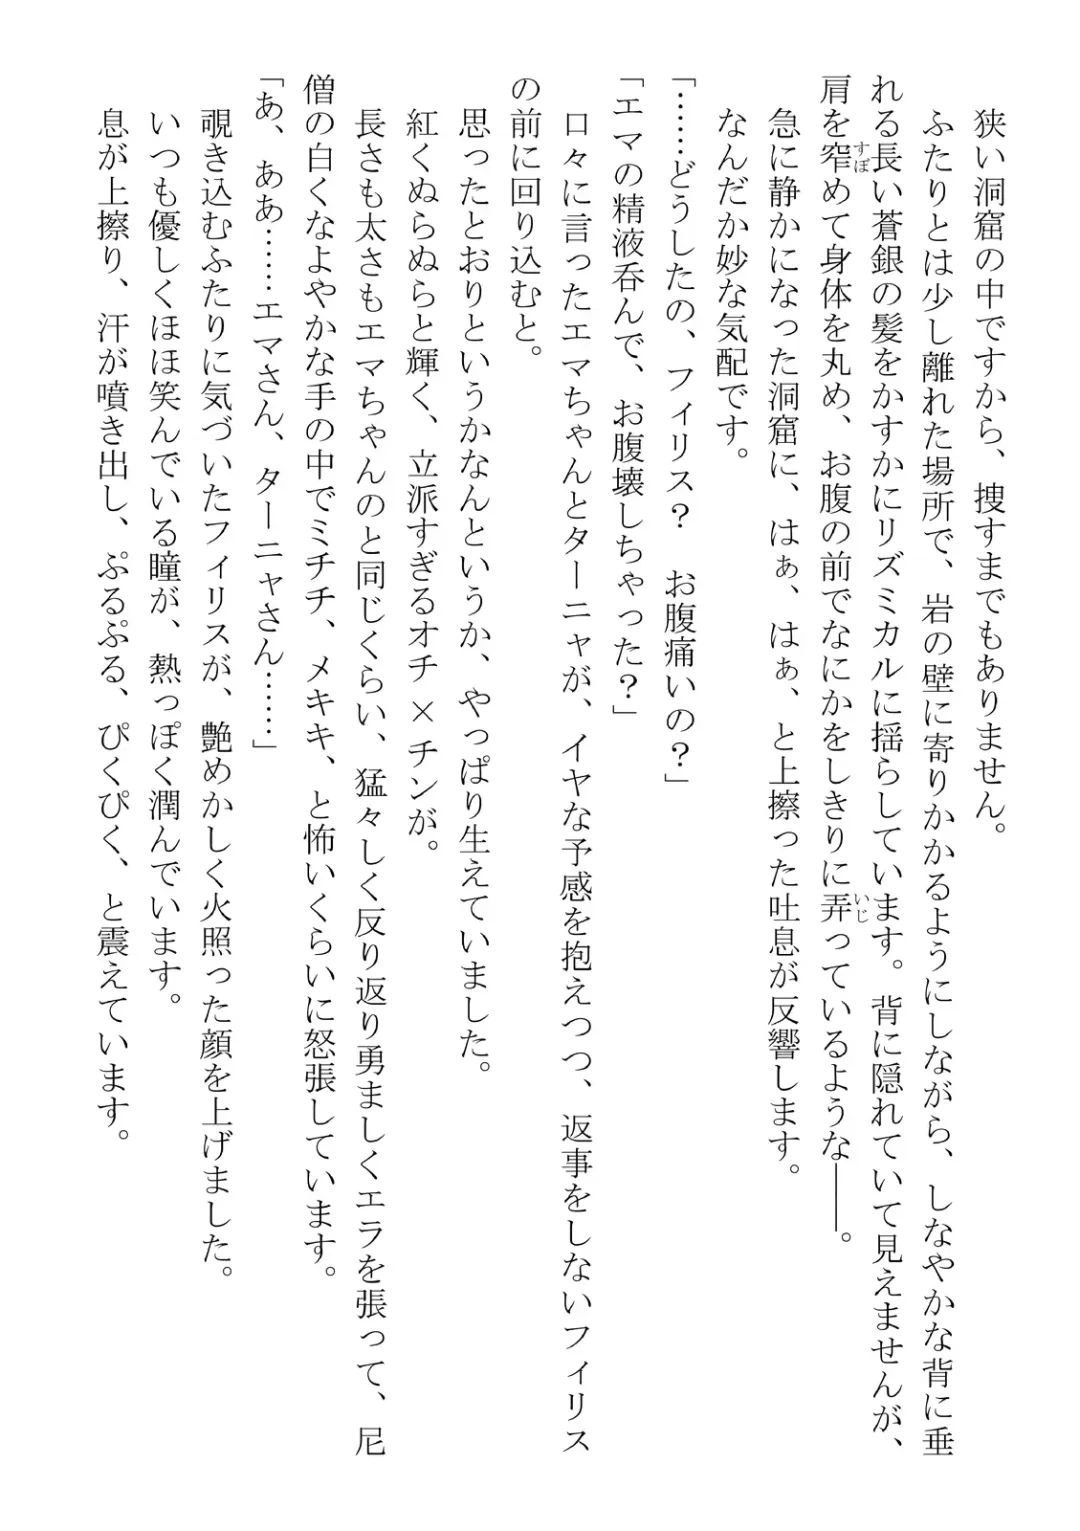 狭い洞窟の中ですから、捜すまでもありません。
ふたりとは少し離れた場所で、岩の壁に寄りかかるようにしながら、しなやかな背に垂
れる長い蒼銀の髪をかすかにリズミカルに揺らしています。背に隠れていて見えませんが、
肩を窄すぼめて身体を丸め、お腹の前でなにかをしきりに弄いじっているような――。
急に静かになった洞窟に、はぁ、はぁ、と上擦った吐息が反響します。
なんだか妙な気配です。
「……どうしたの、フィリス？　お腹痛いの？」
「エマの精液呑んで、お腹壊しちゃった？」
口々に言ったエマちゃんとターニャが、イヤな予感を抱えつつ、返事をしないフィリス
の前に回り込むと。
思ったとおりというかなんというか、やっぱり生えていました。
紅くぬらぬらと輝く、立派すぎるオチ×チンが。
長さも太さもエマちゃんのと同じくらい、猛々しく反り返り勇ましくエラを張って、尼
僧の白くなよやかな手の中でミチチ、メキキ、と怖いくらいに怒張しています。
「あ、ああ……エマさん、ターニャさん……」
覗き込むふたりに気づいたフィリスが、艶めかしく火照った顔を上げました。
いつも優しくほほ笑んでいる瞳が、熱っぽく潤んでいます。
息が上擦り、汗が噴き出し、ぷるぷる、ぴくぴく、と震えています。